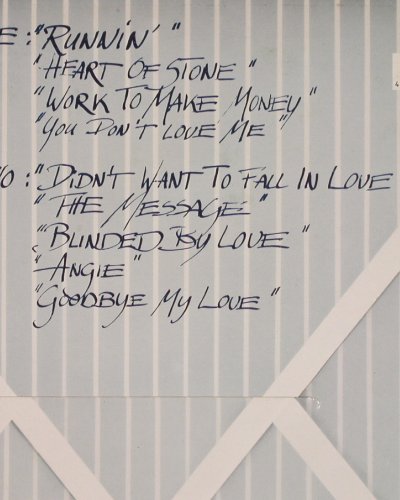 E: "RUNNIN'"
"HEART OF STONE"
"WORK TO MAKE MONEY"
"YOU DON'T LOVE ME"
O: "DIDN'T WANT TO FALL IN LOVE
"THE MESSAGE"
"BLINDED BY LOVE"
"ANGIE"
"GOODBYE MY LOVE"